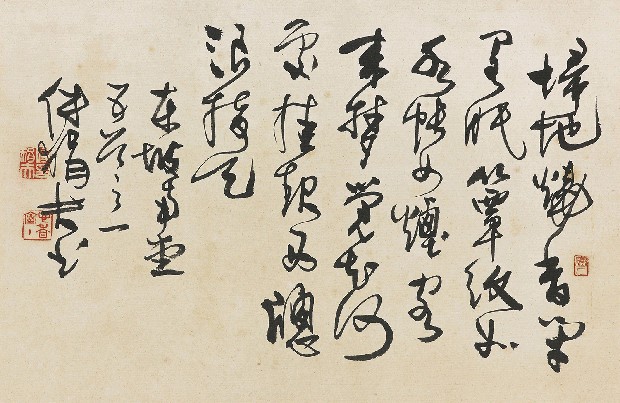 掃地燒香閉
閣眠簟紋如
水帳如煙客
來夢覺知何
處挂起西牕
浪接天
東坡南堂
五首之一
傅狷夫書